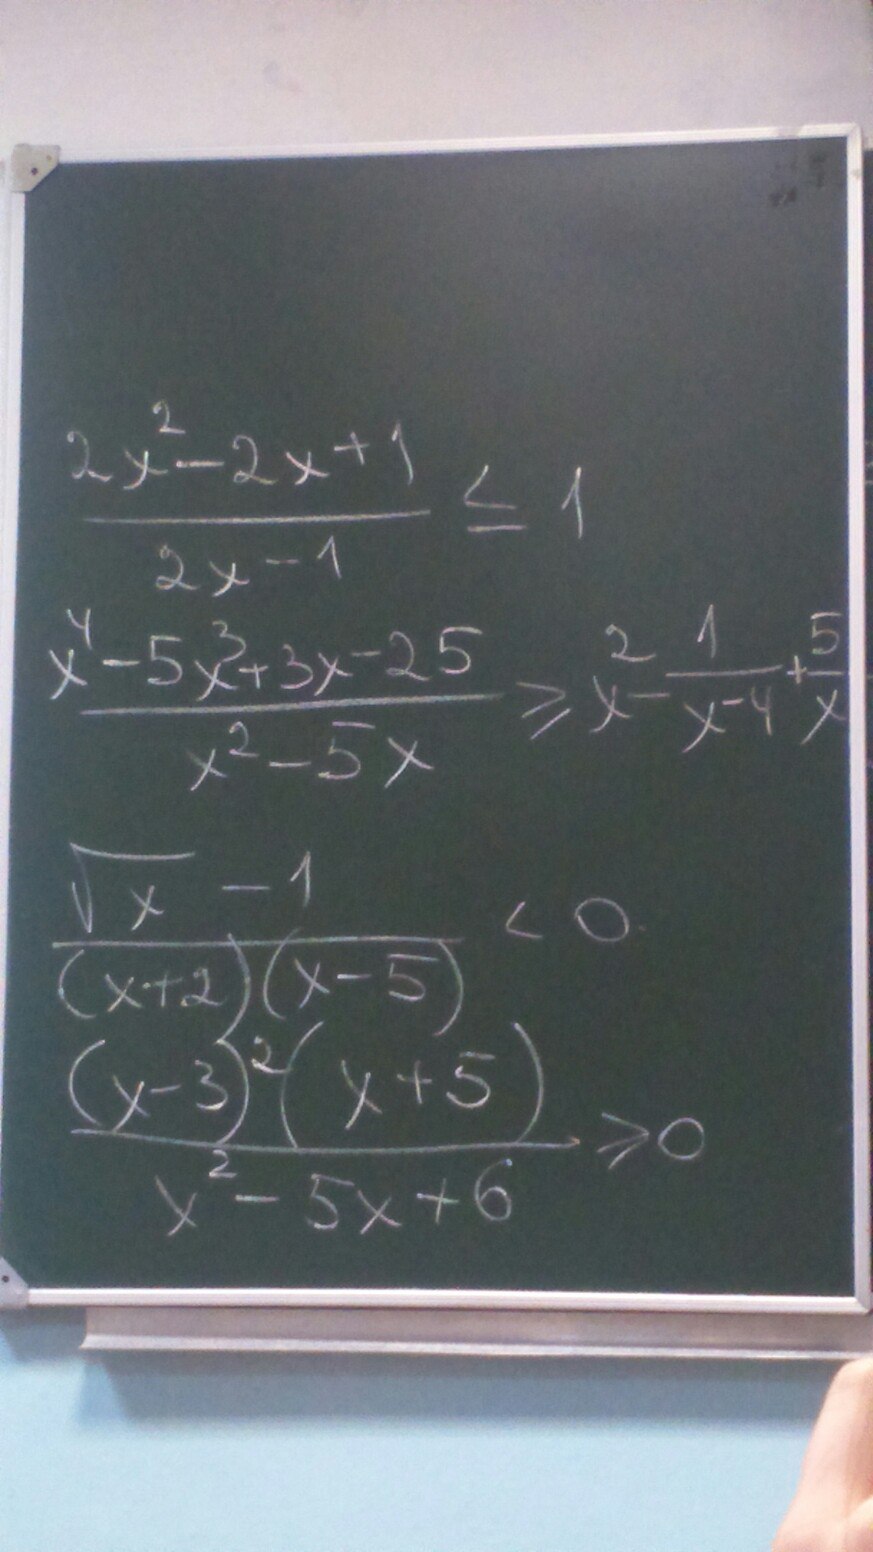 (2x² - 2x + 1)/(2x - 1) ≤ 1
(x⁴ - 5x³ + 3x - 25)/(x² - 5x) ≥ x² - 1/(x - 4) + 5/x
(√x - 1)/((x + 2)(x - 5)) < 0
((x - 3)²(x + 5))/(x² - 5x + 6) ≥ 0